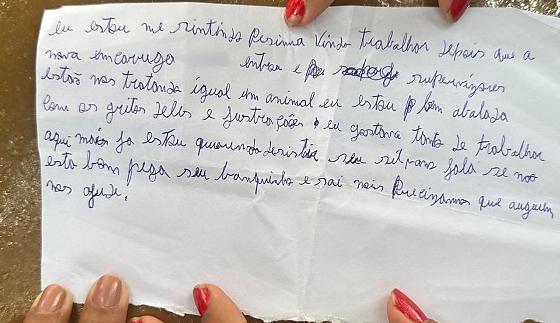 eu estou me sintindo Pesima vindo trabalhar depois que a
nova emcarrega entrou e Os supervizores
estão nos tratando igual um animal eu estou bem abalada
com os gritos deles e frustrações eu gostava tanto de trabalhar
aqui mais ja estou querendo desistir seu silvano fala se não
esta bom pega seu banquinho e sai nois Precizamos que auguem
nos ajude.